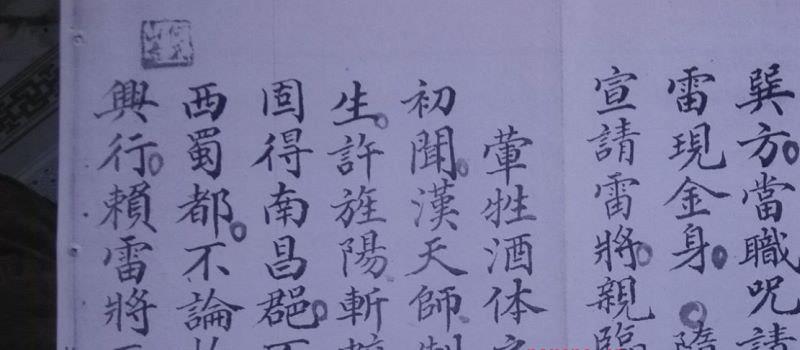 巽方。當職呪請
雷現金身。
宣請雷將。親臨
葷牲酒体
初聞。漢天師制
生。許旌陽斬
固得南昌郡。
西蜀都。不論
興行。賴雷將